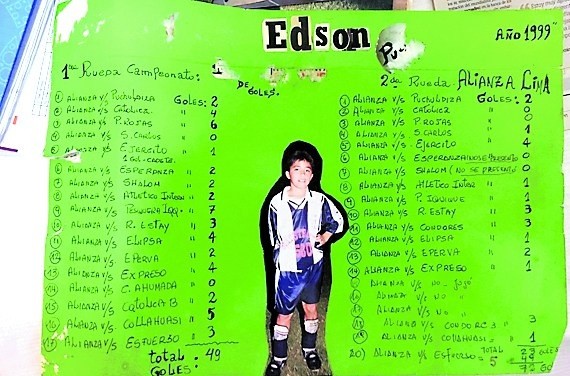 Edson
AÑO 1999"
1ra Rueda Campeonato: 1
DE
GOLES.
① ALIANZA V/S PUCHULDIZA GOLES: 2
② ALIANZA V/S CATOLICA " 4
③ ALIANZA V/S P. ROJAS " 6
④ ALIANZA V/S S. CARLOS " 0
⑤ ALIANZA V/S EJERCITO " 4
⑥ ALIANZA V/S ESPERANZA " 2
⑦ ALIANZA V/S SHALOM " 2
⑧ ALIANZA V/S ATLETICO INTER " 2
⑨ ALIANZA V/S " 7
⑩ ALIANZA V/S R. ESTAY " 3
⑪ ALIANZA V/S ELIPSA " 4
⑫ ALIANZA V/S EPERVA " 2
⑬ ALIANZA V/S EXPRESO " 4
⑭ ALIANZA V/S C. AHUMADA " 0
⑮ ALIANZA V/S CATOLICA B " 2
⑯ ALIANZA V/S COLLAHUASI " 5
⑰ ALIANZA V/S ESFUERSO " 3
total. 49
GOLES:
2da Rueda ALIANZA LIMA
① ALIANZA V/S PUCHULDIZA GOLES: 2
② ALIANZA V/S CATOLICA " 0
③ ALIANZA V/S P. ROJAS " 0
④ ALIANZA V/S S. CARLOS " 1
⑤ ALIANZA V/S EJERCITO " 4
⑥ ALIANZA V/S ESPERANZA 0
⑦ ALIANZA V/S SHALOM (NO SE PRESENTO) 0
⑧ ALIANZA V/S ATLETICO INTER " 1
⑨ ALIANZA V/S P. IQUIQUE " 1
⑩ ALIANZA V/S R. ESTAY " 3
⑪ ALIANZA V/S CONDORES " 3
⑫ ALIANZA V/S ELIPSA " 1
⑬ ALIANZA V/S EPERVA " 2
⑭ ALIANZA V/S EXPRESO " 1
ALIANZA V/S NO
ALIANZA V/S NO "
ALIANZA V/S NO
ALIANZA V/S CONDORES 3
ALIANZA V/S COLLAHUASI " 1
20) ALIANZA V/S ESFUERSO TOTAL 5